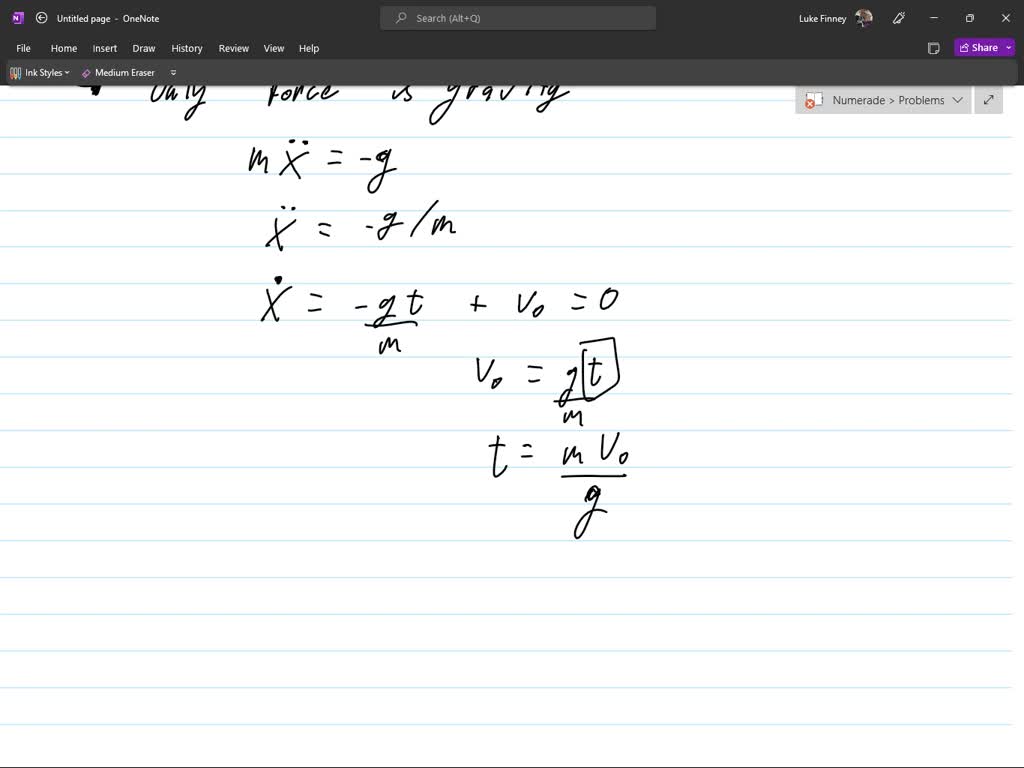 Untitled page - OneNote
Search (Alt+Q)
Luke Finney
File Home Insert Draw History Review View Help
Share
Ink Styles Medium Eraser
Numerade > Problems
Only force is gravity
m ẍ = -g
ẍ = -g/m
ẋ = -gt/m + v₀ = 0
v₀ = gt/m
t = m v₀/g